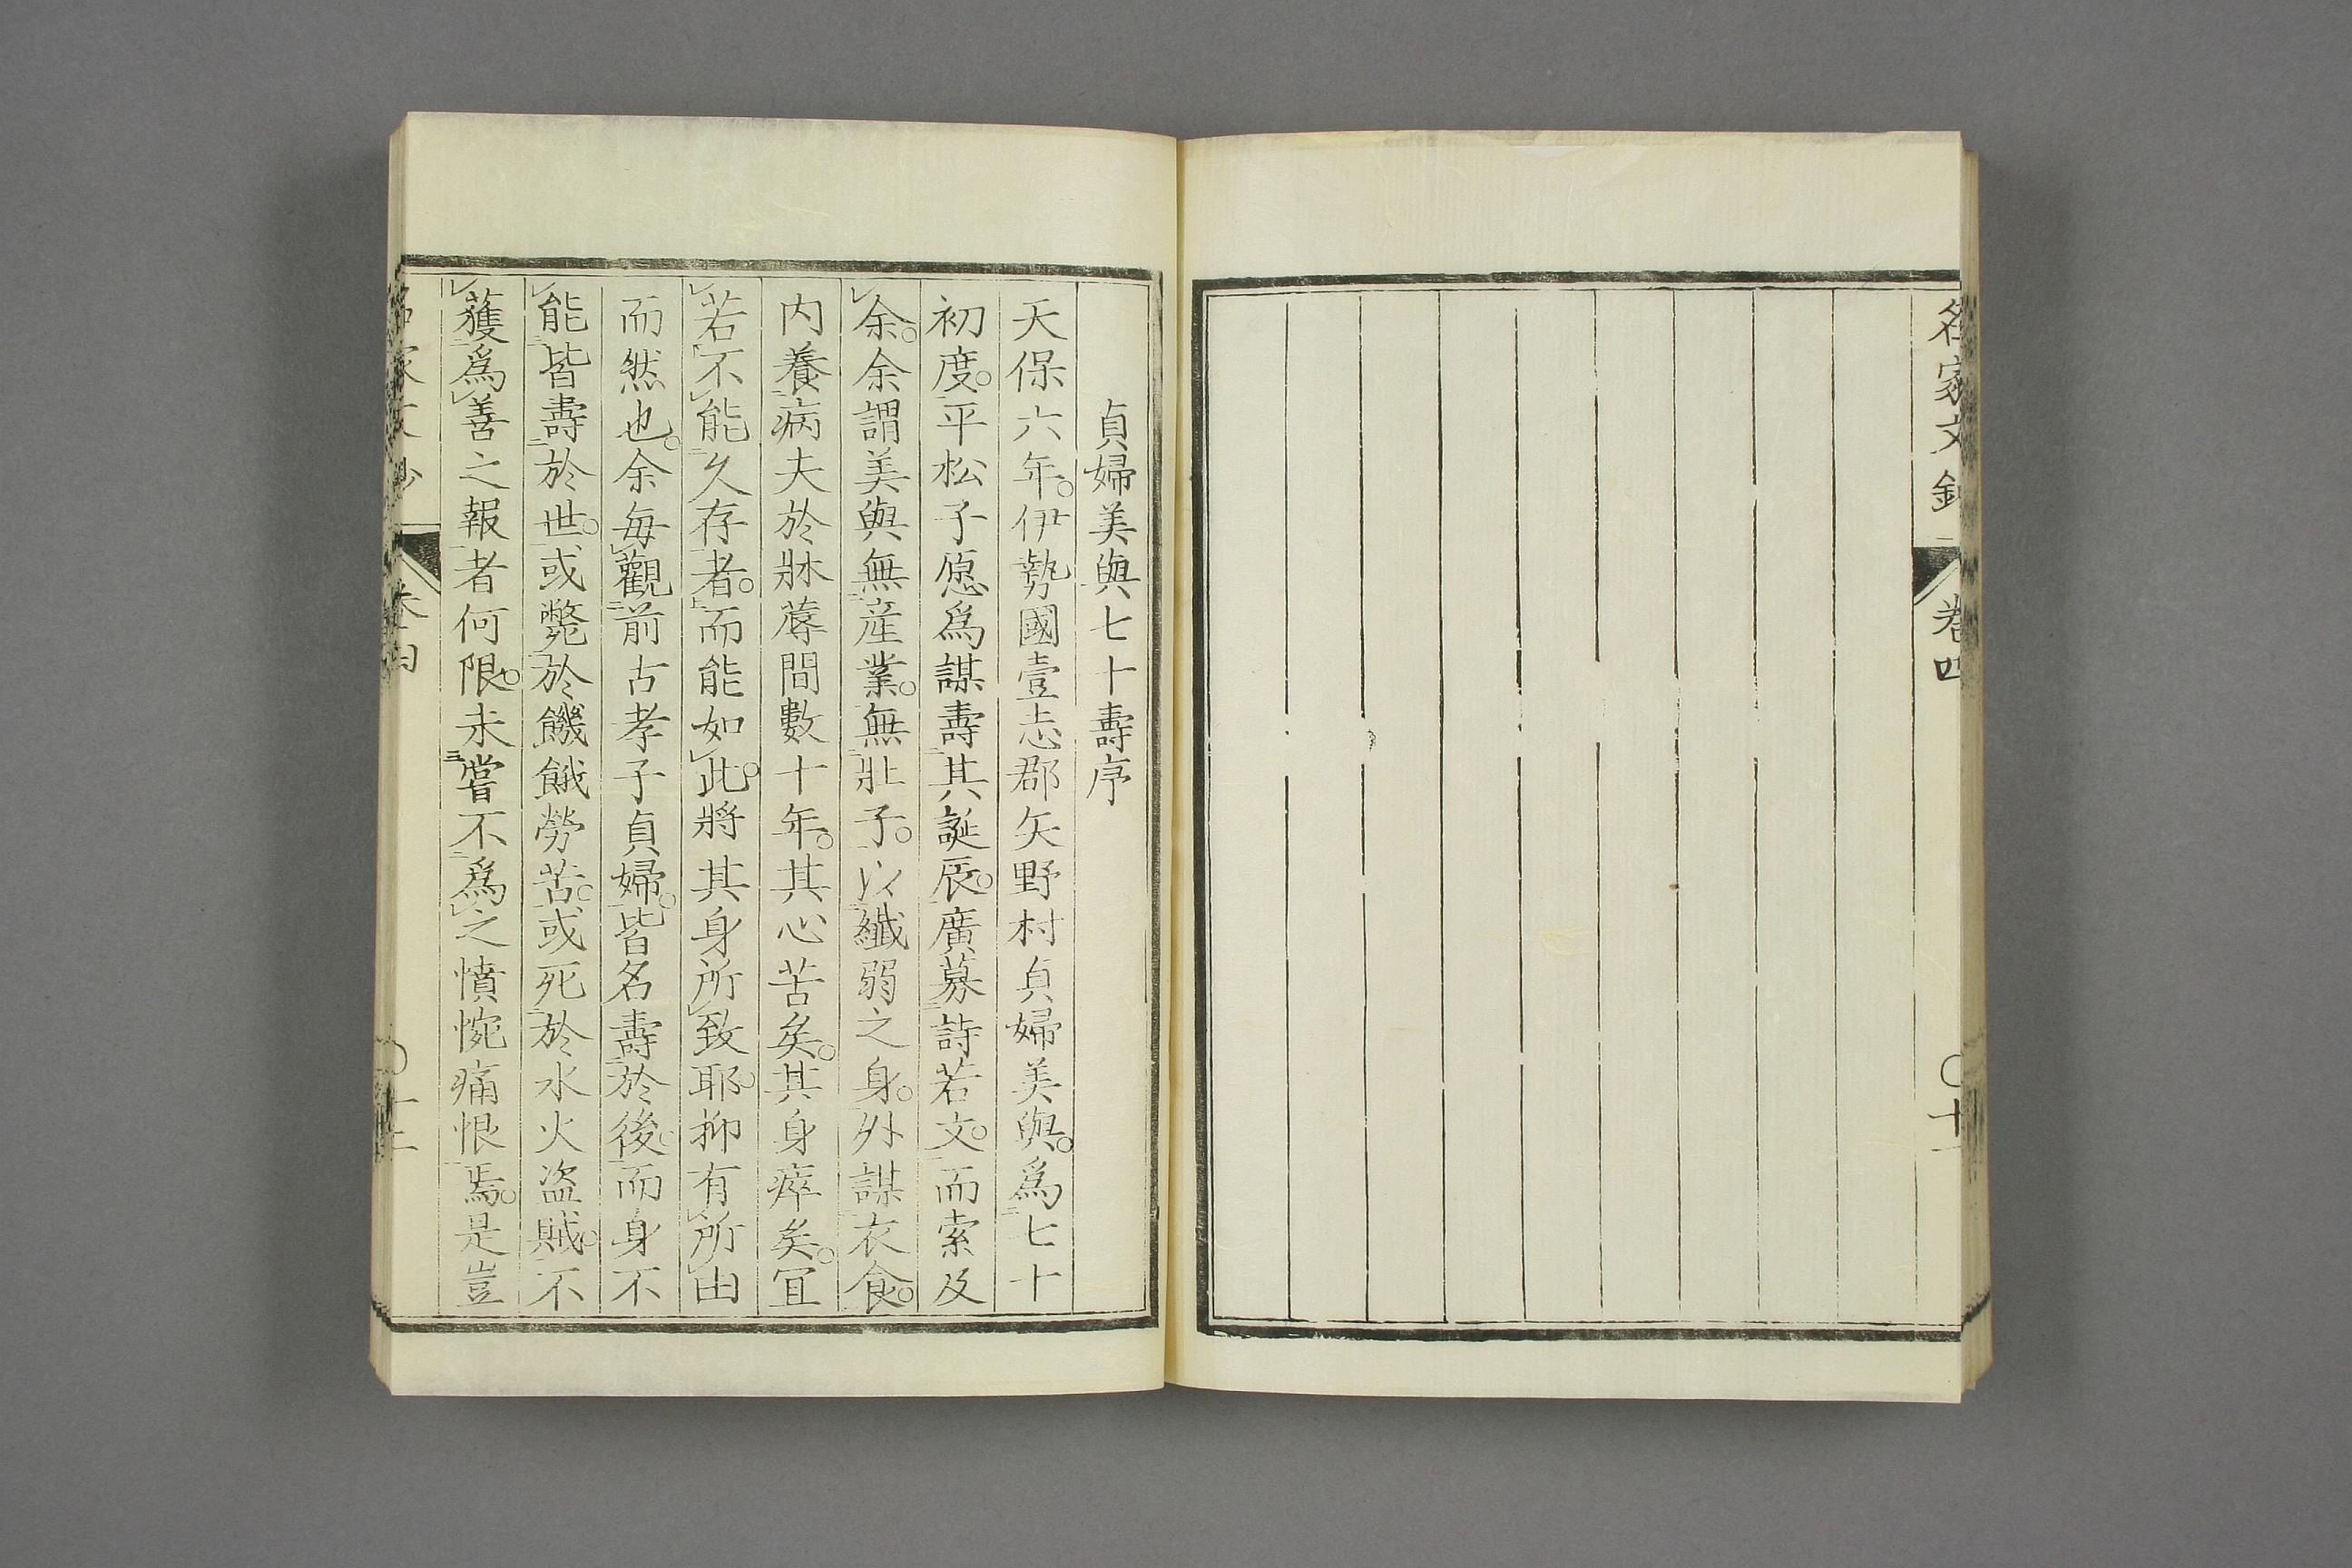 名家文鈔
卷四
十一
貞婦美與七十壽序
天保六年。伊勢國壹志郡矢野村貞婦美與。爲七十
初度。平松子愿爲謀壽其誕辰。廣募詩若文。而索及
余。余謂美與無産業。無壯子。以纖弱之身。外謀衣食。
内養病夫於牀蓐間數十年。其心苦矣。其身瘁矣。宜
若不能久存者。而能如此。將其身所致耶。抑有所由
而然也。余每觀前古孝子貞婦。皆名壽於後。而身不
能皆壽於世。或斃於饑餓勞苦。或死於水火盜賊。不
獲爲善之報者何限。未嘗不爲之憤惋痛恨焉。是豈